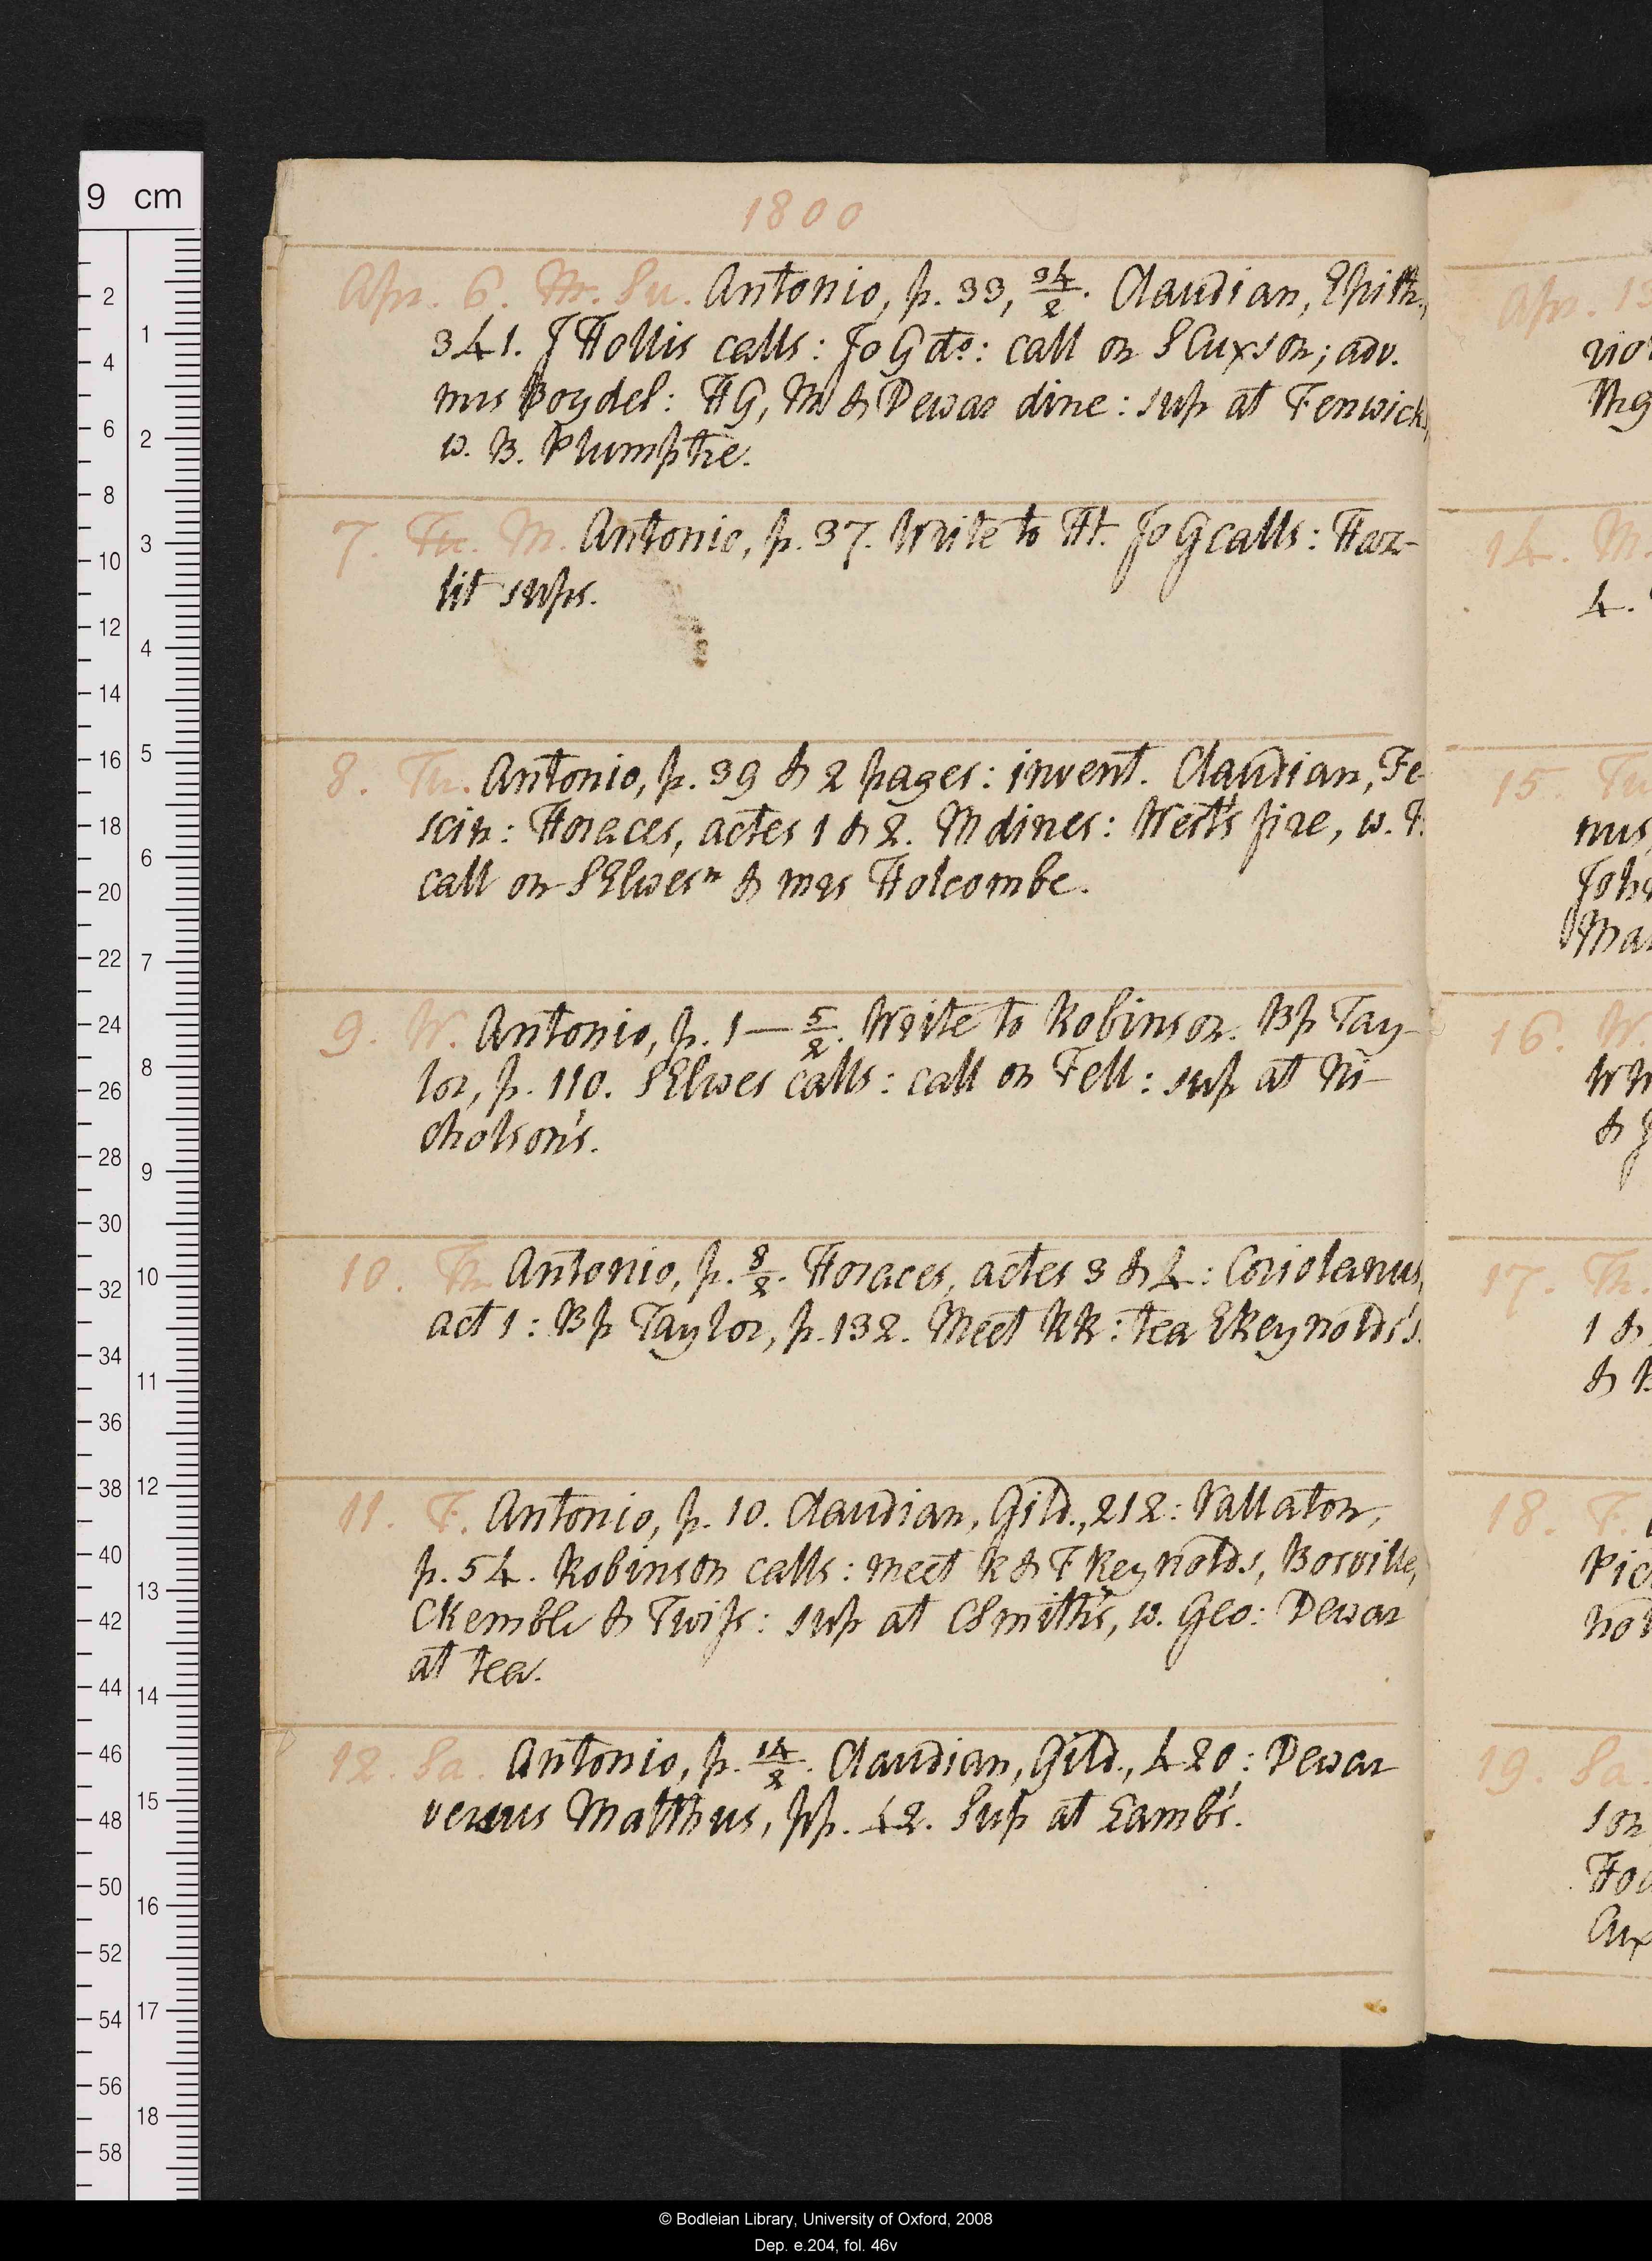 1800
Apr. 6. M. Su. Antonio, p. 33, 34/2. Claudian, Epith.,
341. J Hollis calls: Jo G do: call on S Cuxson; adv.
mrs Boydel: HG, M & Dewar dine: sup at Fenwick's,
w. B. Plumptre.
7. Tu. M. Antonio, p. 37. Write to Ht. Jo G calls: Haz-
lit sups.
8. Tu. Antonio, p. 39 & 2 pages: invent. Claudian, Fe-
scin: Horaces, actes 1 & 2. M dines: West's fire, w. F.
call on S Elwes n & mrs Holcombe.
9. W. Antonio, p. 1—5/2. Write to Robinson. Bp Tay-
lor, p. 110. S Elwes calls: call on Fell: sup at Ni-
cholson's.
10. Th. Antonio, p. 8/2. Horaces, actes 3 & 4: Coriolanus,
act 1: Bp Taylor, p. 132. Meet KK: tea E Reynolds's.
11. F. Antonio, p. 10. Claudian, Gild., 212: Vallaton,
p. 54. Robinson calls: meet R & F Reynolds, Bosville,
C Kemble & Twiss: sup at C Smith's, w. Geo: Dewar
at tea.
12. Sa. Antonio, p. 14/2. Claudian, Gild., 420: Dewar
versus Malthus, pp. 42. Sup at Lamb's.
Apr. 13
14. M.
4.
15. Tu
nus,
16. W.
17. Th.
1 &
18. F.
19. Sa.
son
9 cm
2
4
6
8
10
12
14
16
18
20
22
24
26
28
30
32
34
36
38
40
42
44
46
48
50
52
54
56
58
1
2
3
4
5
6
7
8
9
10
11
12
13
14
15
16
17
18
© Bodleian Library, University of Oxford, 2008
Dep. e.204, fol. 46v